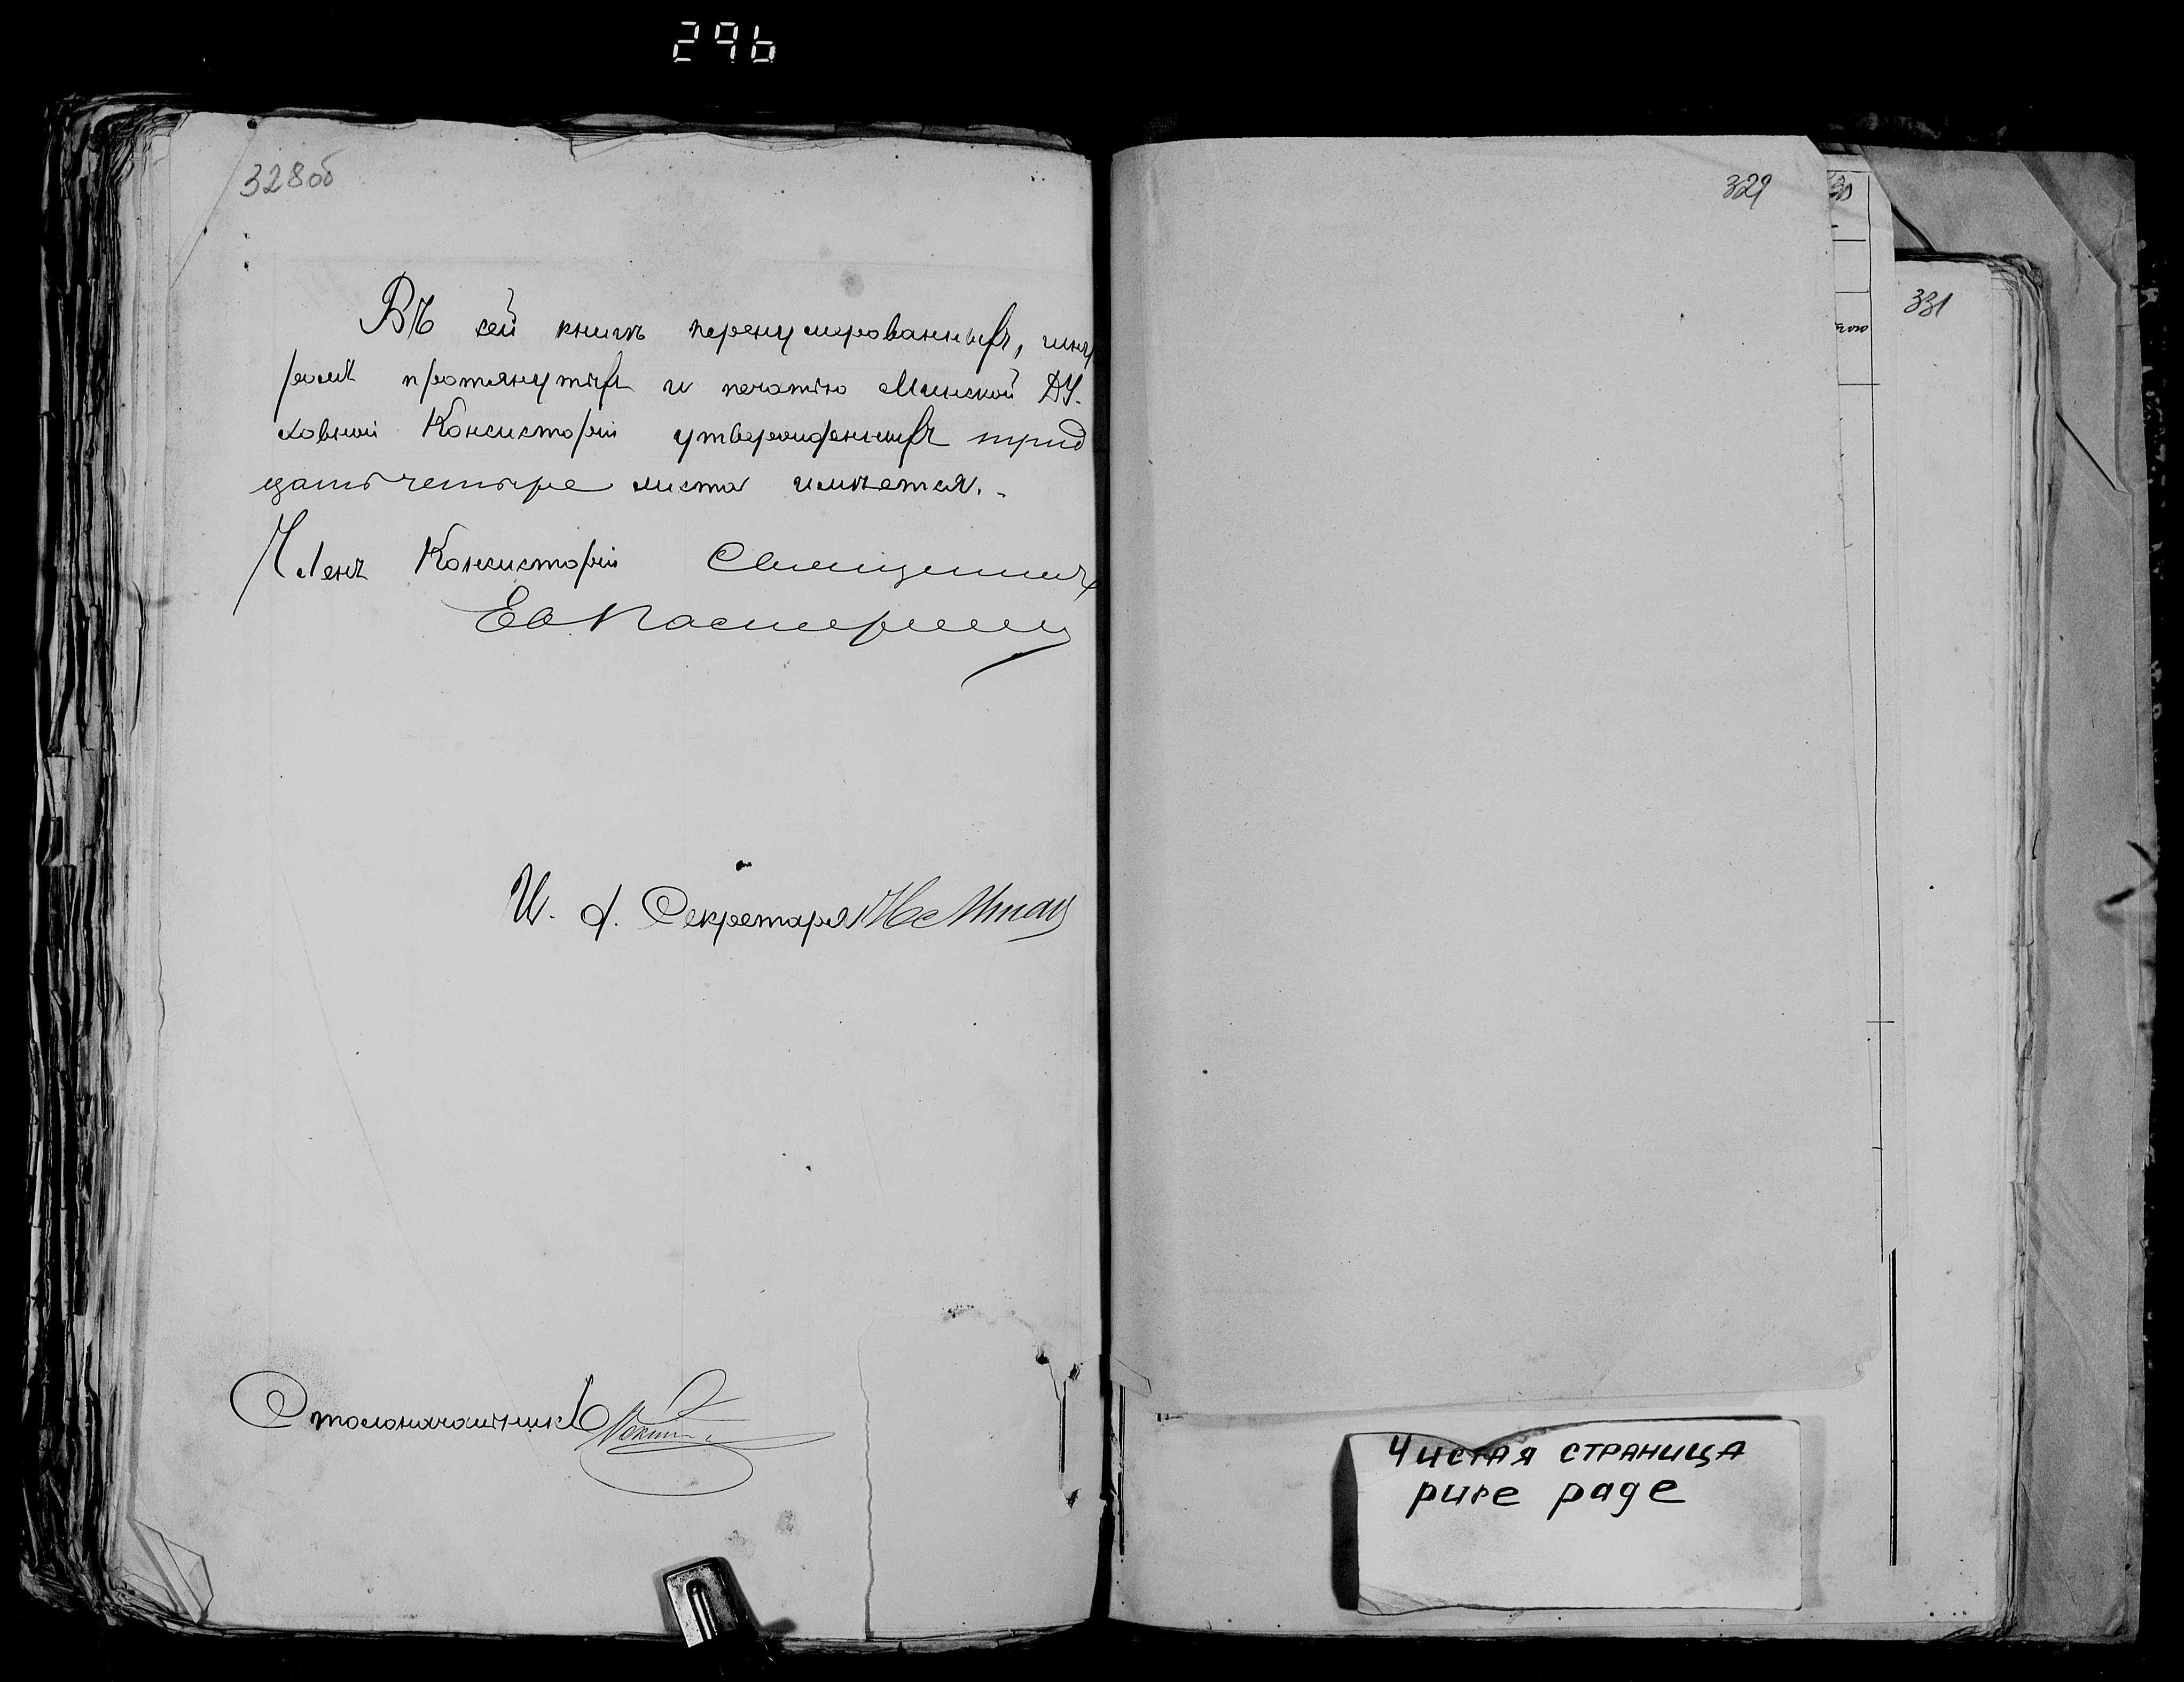 296
328об
Въ сей книгѣ перенумерованныхъ, шну
ромъ протянутыхъ и печатью Минской Ду-
ховной Консисторіи утвержденныхъ трид
цать четыре листа имѣется.
Членъ Консисторіи Священникъ
И. д. Секретаря
Столоначальникъ
329
331
Чистая страница
pure page